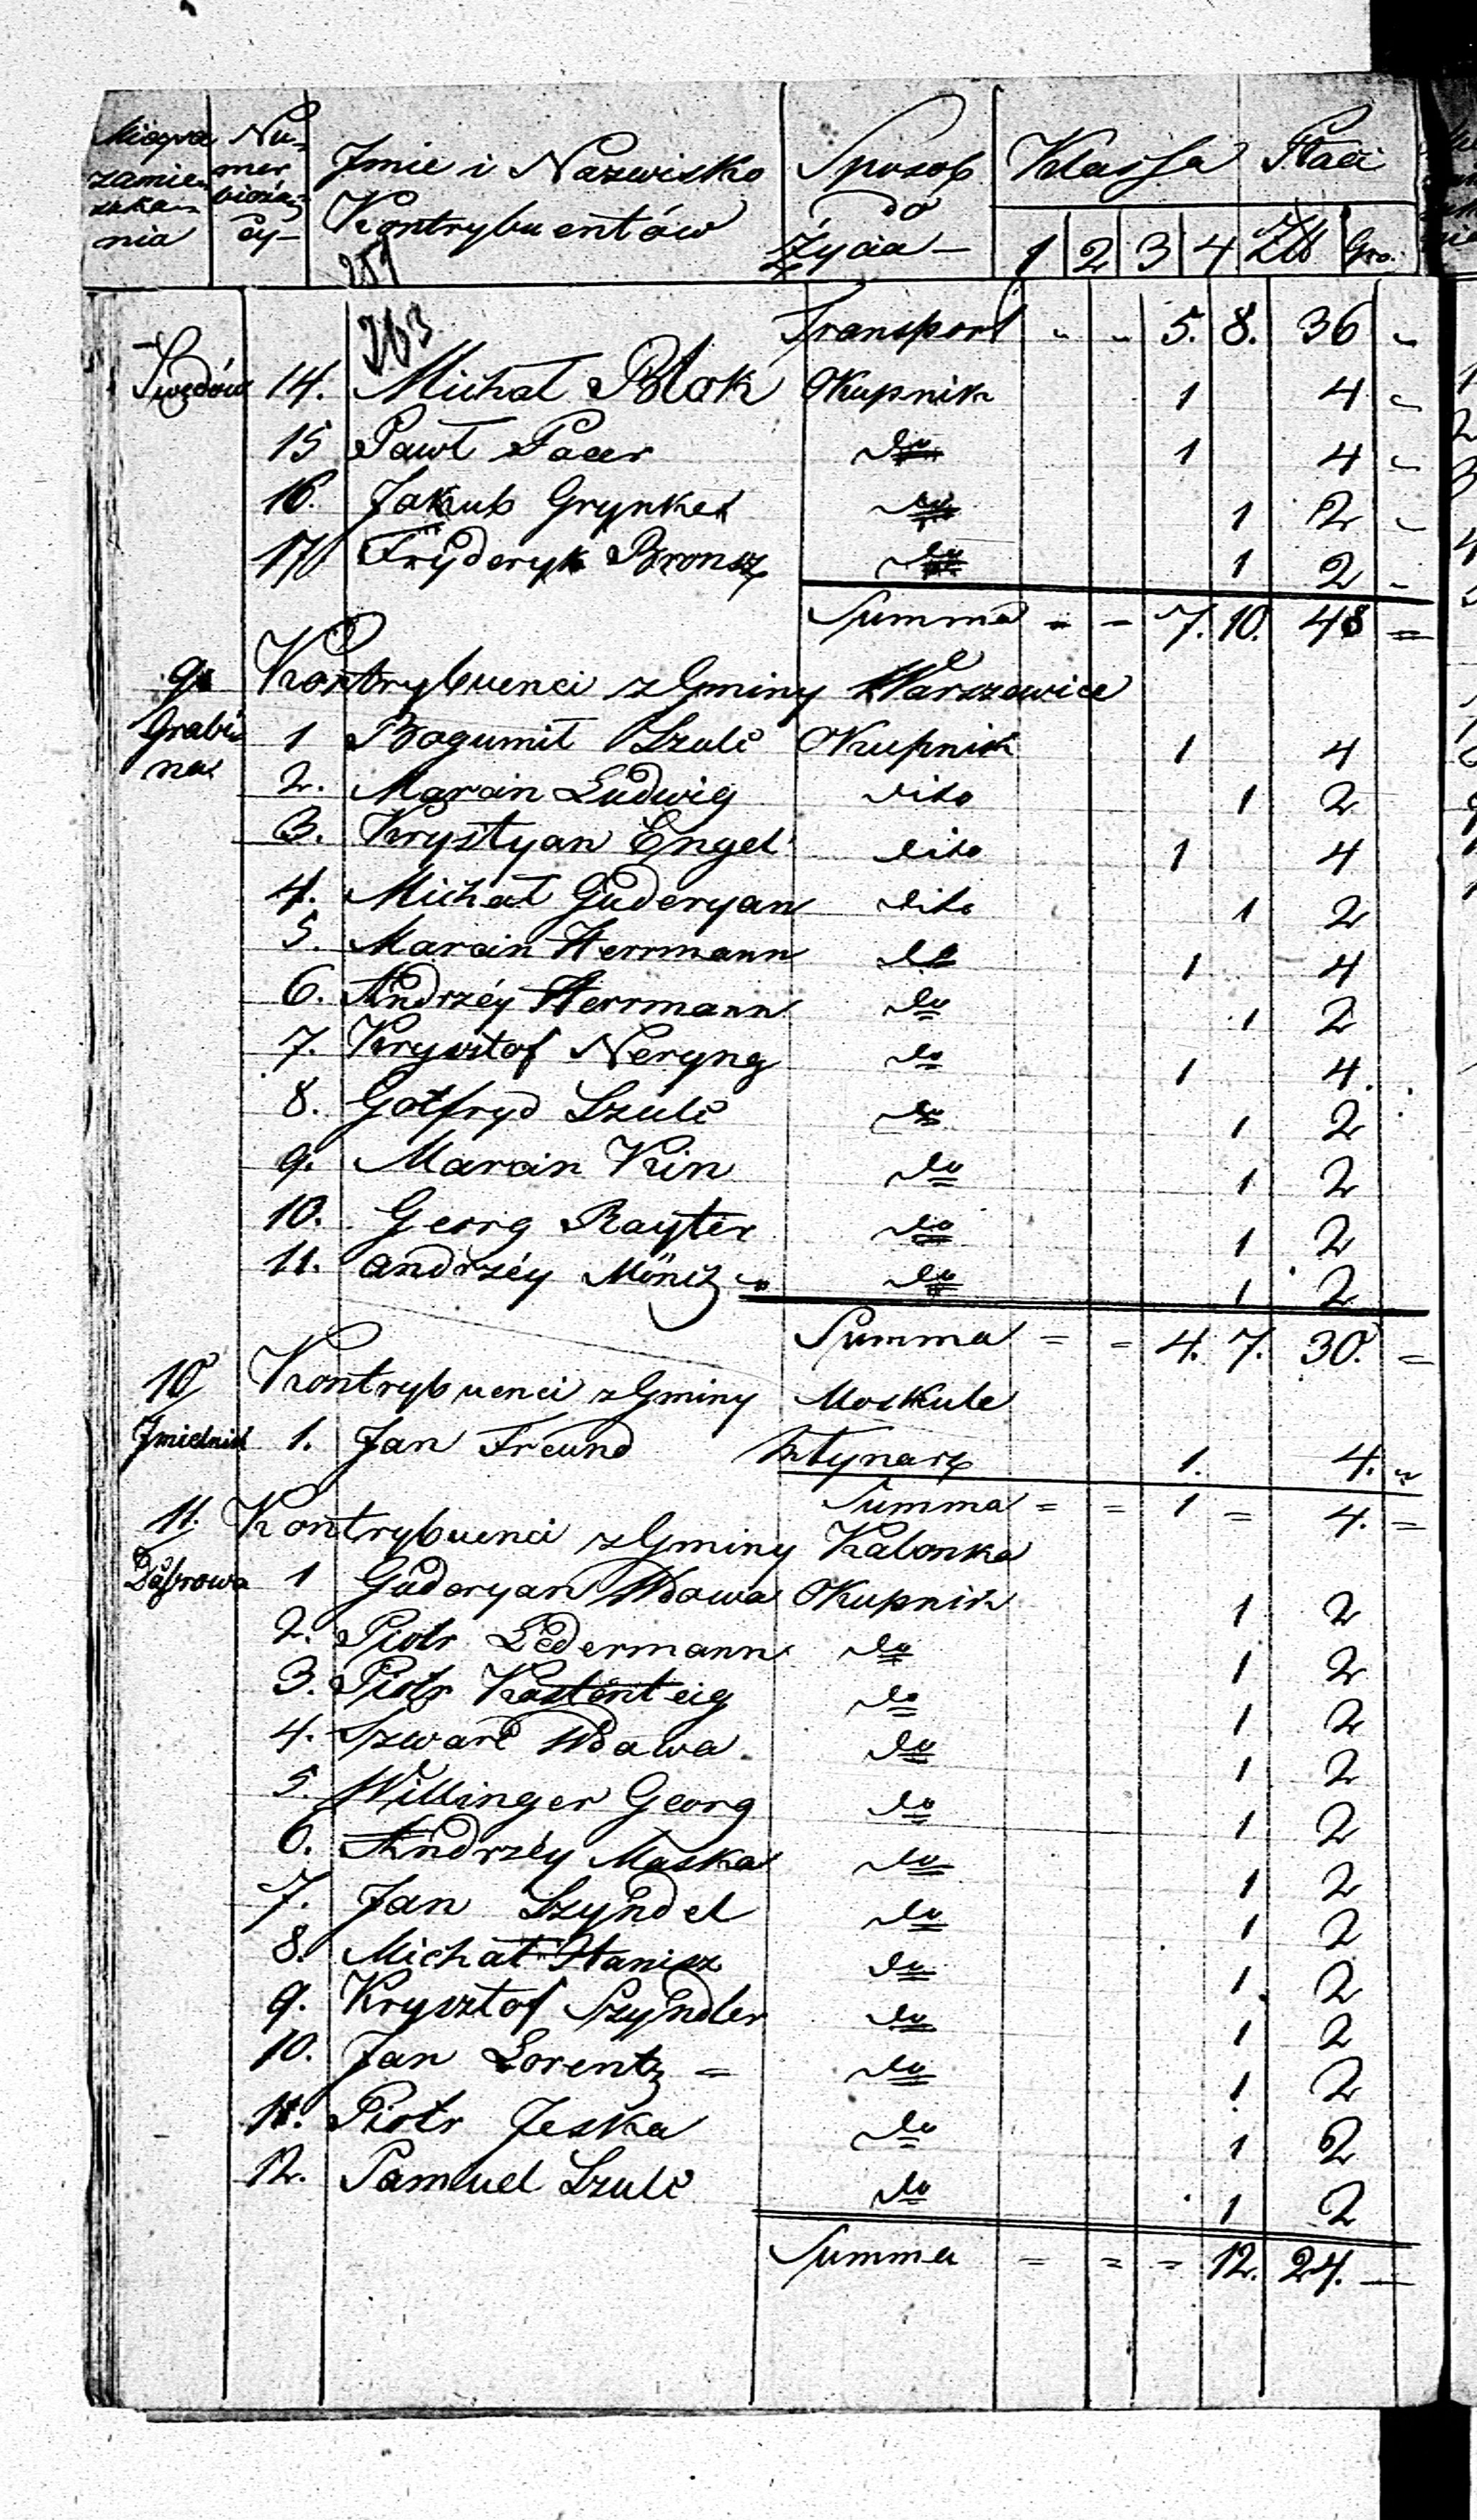 Mieysce zamieszkania Numer bieżący Jmie i Nazwisko Kontrybuentów Sposob do Życia Klassa 1 2 3 4 Płaci Złł Gro.
251
263
Transport " " 5. 8. 36 "
Swędów 14. Michał Blok Okupnik 1 4 "
15 Pawł Pacer do 1 4 "
16. Jakub Grynket do 1 2 "
17 Fryderyk Bronsz do 1 2 "
Summa = - 7. 10. 48 =
9. Kontrybuenci z Gminy Warszewice
Grabina 1 Bogumił Szulc Okupnik 1 4
2. Marcin Ludwig dito 1 2
3. Krystyan Engel dito 1 4
4. Michał Guderyan dito 1 2
5. Marcin Herrmann do 1 4
6. Andrzéy Herrmann do 1 2
7. Krysztof Neryng do 1 4.
8. Gotfryd Szulc do 1 2
9. Marcin Kin do 1 2
10. Georg Rayter do 1 2
11. Andrzéy Mönch do 1 2
Summa = = 4. 7. 30. =
10 Kontrybuenci z Gminy Moskule
Jmielnik 1. Jan Freund Młynarz 1. 4. "
Summa = = 1 = 4. =
11. Kontrybuenci z Gminy Kalonka
Dąbrowa 1 Guderyan Wdowa Okupnik 1 2
2. Piotr Ledermann do 1 2
3. Piotr Kastenteig do 1 2
4. Szwarc Wdowa do 1 2
5. Willinger Georg do 1 2
6. Andrzéy Maska do 1 2
7. Jan Szyndel do 1 2
8. Michał Hanisz do 1 2
9. Krysztof Szyndler do 1 2
10. Jan Lorentz = do 1 2
11. Piotr Jeska do 1 2
12. Samuel Szulc do 1 2
Summa = = = 12. 24. —